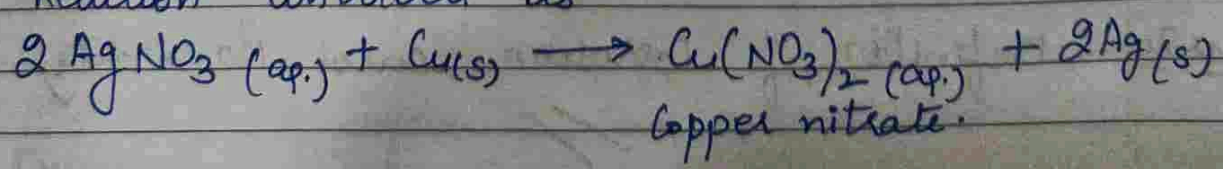 2 AgNO₃ (aq.) + Cu(s) ⟶ Cu(NO₃)₂ (aq.) + 2Ag(s)
Copper nitrate.